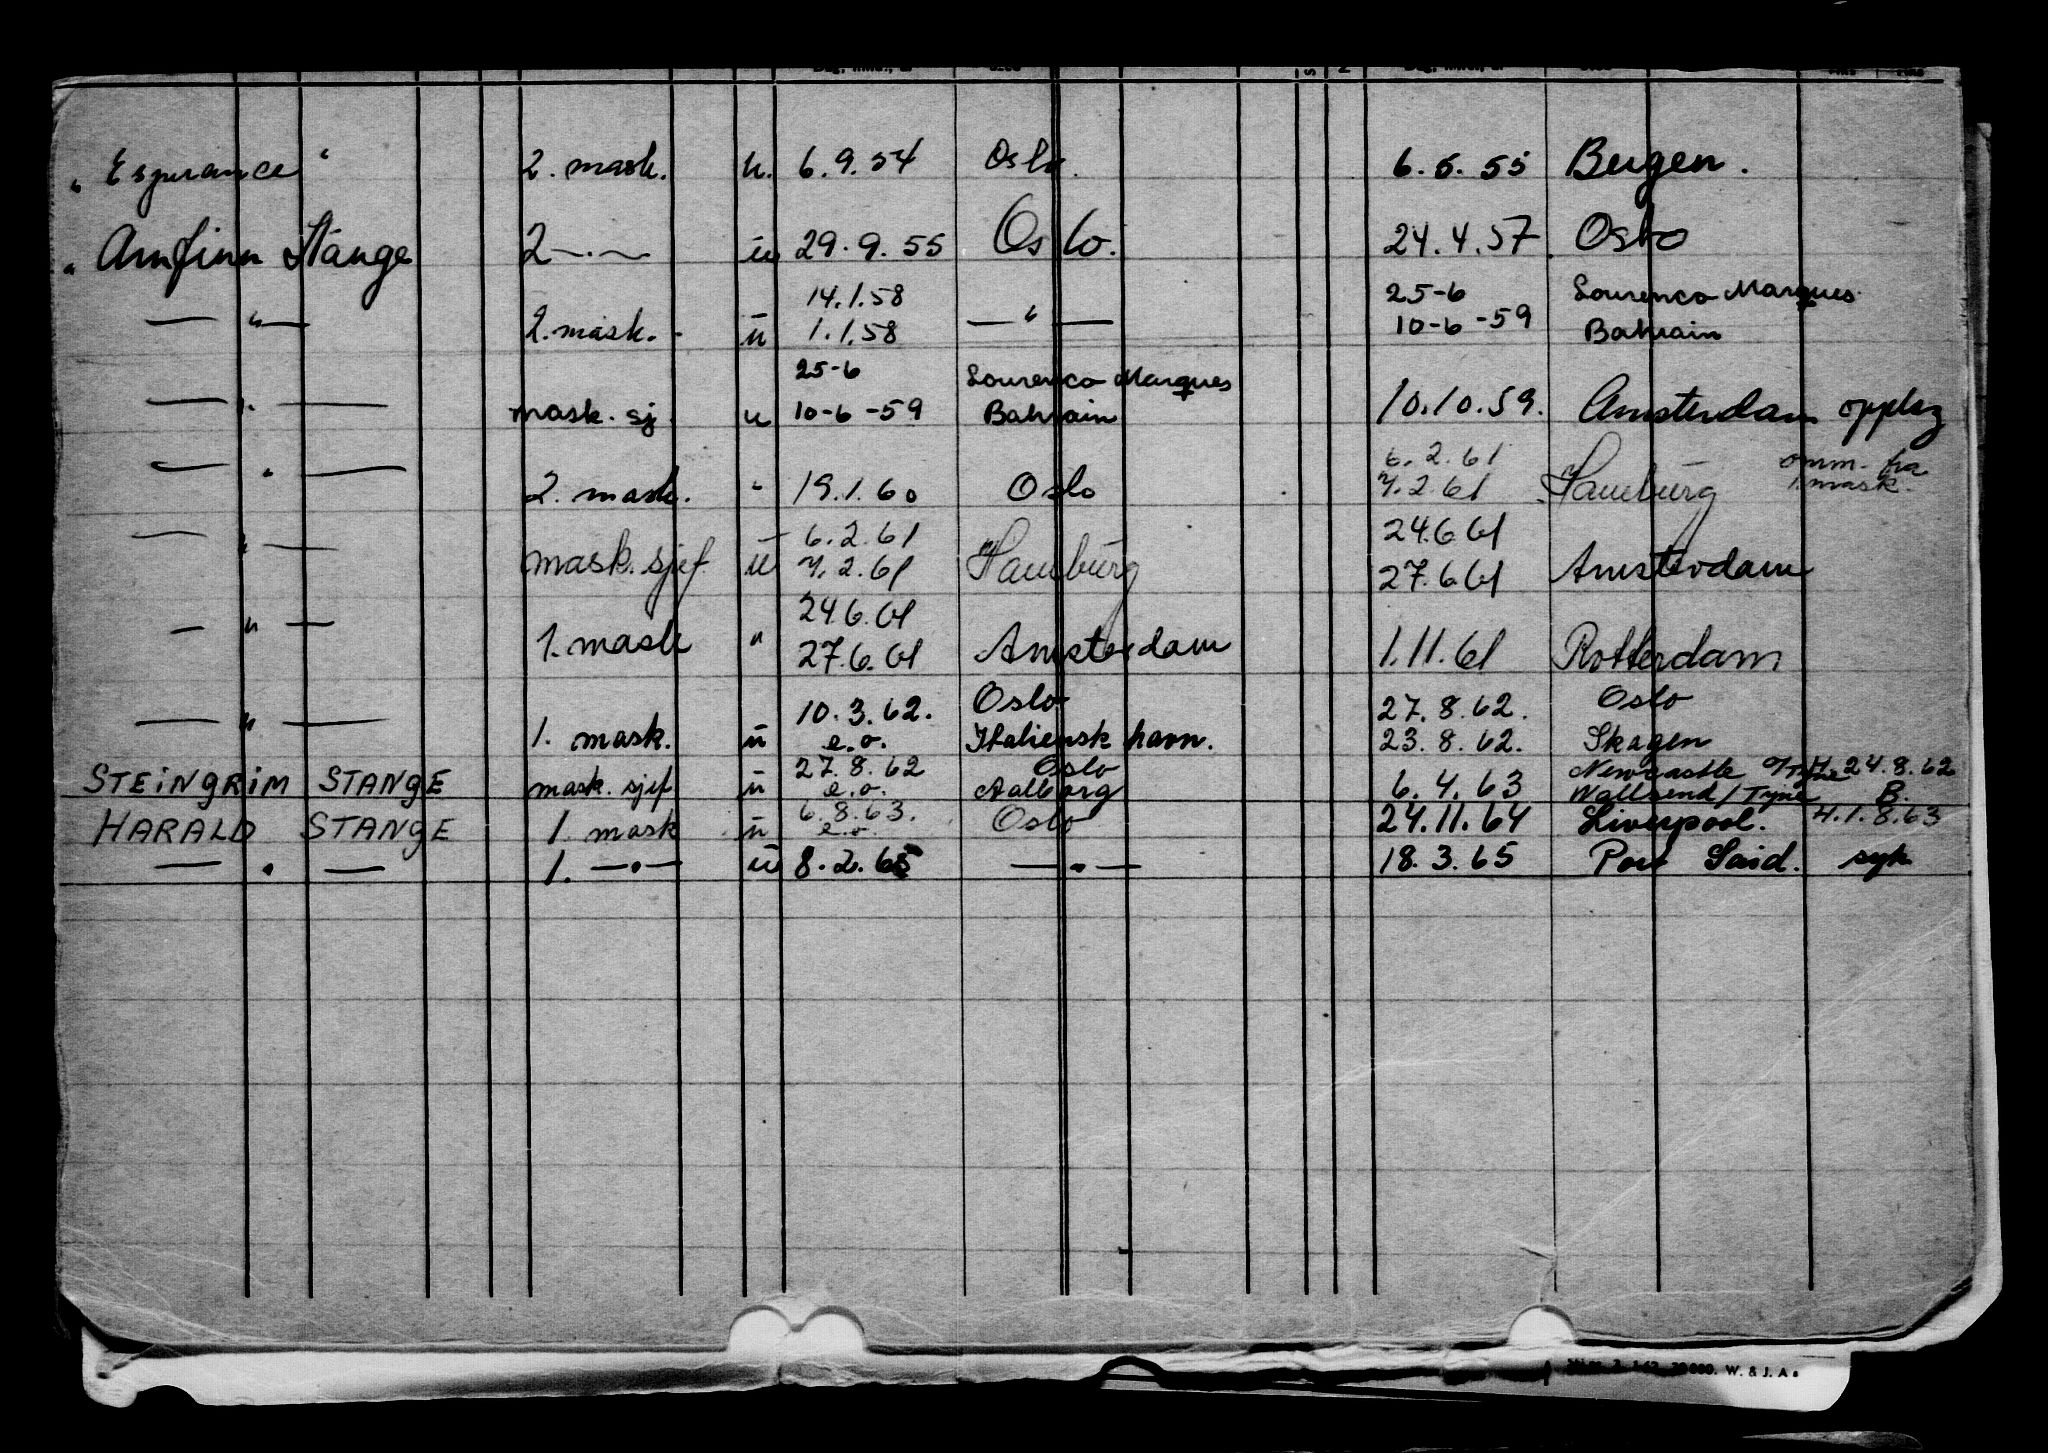 „ Esperance " 2. mask. u. 6.9.54 Oslo. 6.5.55 Bergen.
„ Arnfinn Stange 2 —〃— u 29.9.55 Oslo. 24.4.57 Oslo
14.1.58 25-6 Lourenco Marques
— " — 2. mask. - u 1.1.58 — " — 10-6-59 Bahrain
25-6 Lourenco Marques
— " — mask. sj. u 10-6-59 Bahrain 10.10.59. Amsterdam opplag
6.2.61 omm. fra
— " — 2. mask. " 19.1.60 Oslo 7.2.61 Hamburg 1. mask.
6.2.61 24.6.61
— " — mask. sjef u 7.2.61 Hamburg 27.6.61 Amsterdam
24.6.61
— " — 1. mask " 27.6.61 Amsterdam 1.11.61 Rotterdam
10.3.62. Oslo 27.8.62. Oslo
— " — 1. mask. u e.o. Italiensk havn. 23.8.62. Skagen
27.8.62 Oslo Newcastle 24.8.62
STEINGRIM STANGE mask. sjef u e.o. Aalborg 6.4.63 Wallsend/Tyne B.
6.8.63. 4.1.8.63
HARALD STANGE 1. mask u e.o. Oslo 24.11.64 Liverpool.
— " — 1. — " — u 8.2.65 — " — 18.3.65 Port Said. syk
W. & J. A.